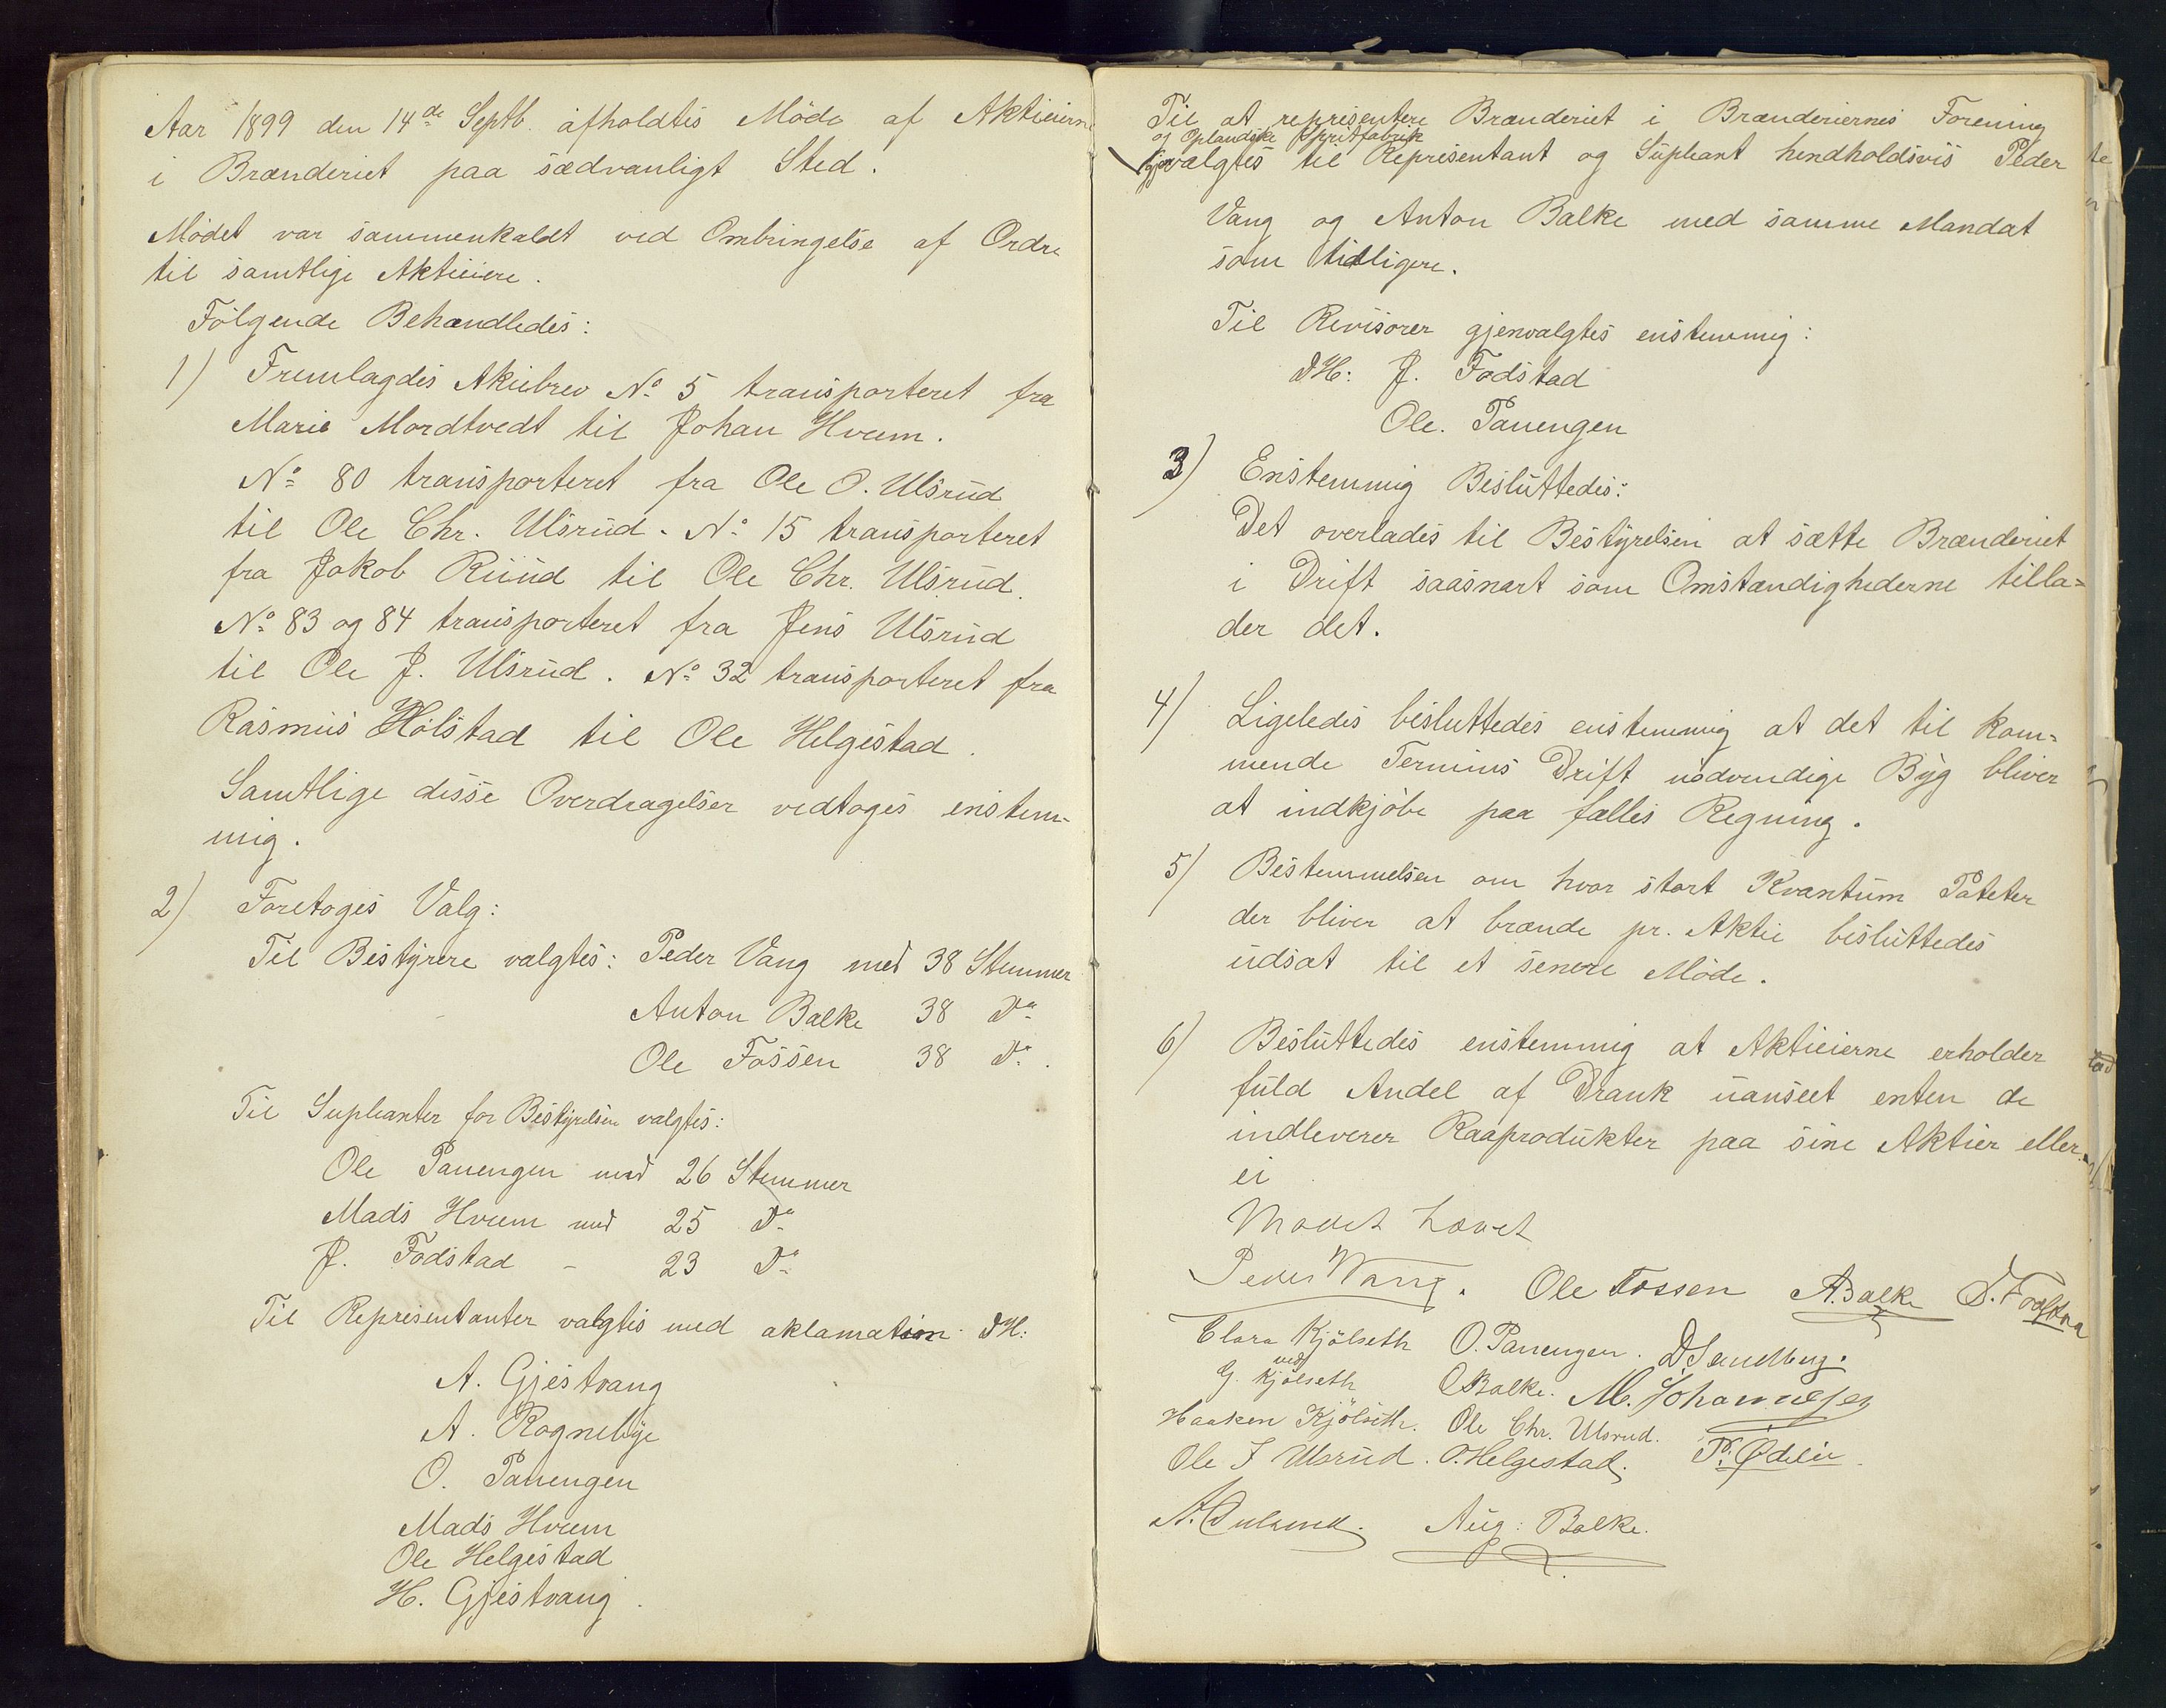 Aar 1899 den 14de Septb. afholdtes Möde af Aktieierne
i Brænderiet paa sædvanligt Sted.
Mödet var sammenkaldt ved Ombringelse af Ordre
til samtlige Aktieiere.
Fölgende Behandledes:
1) Fremlagdes Akiebrev No 5 transporteret fra
Marie Mordtvedt til Johan Hveem.
No 80 transporteret fra Ole O. Ulsrud
til Ole Chr. Ulsrud. No 15 transporteret
fra Jakob Ruud til Ole Chr. Ulsrud.
No 83 og 84 transporteret fra Jens Ulsrud
til Ole J. Ulsrud. No 32 transporteret fra
Rasmus Hölstad til Ole Helgestad.
Samtlige disse Overdragelser vedtoges enstem-
mig.
2) Foretoges Valg:
Til Bestyrere valgtes: Peder Vang med 38 Stemmer
Anton Balke 38 Do
Ole Fossen 38 Do.
Til Supleanter for Bestyrelsen valgtes:
Ole Panengen med 26 Stemmer
Mads Hveem med 25 Do
J. Fodstad - 23 Do
Til Representanter valgtes med aklamation DH:
A. Gjestvang
A. Rognebye
O. Panengen
Mads Hveem
Ole Helgestad
H. Gjestvang.
Til at representere Brænderiet i Brænderiernes Forening
og Oplandske Spritfabrik
gjenvalgtes til Representant og Supleant hendholdsvis Peder
Vang og Anton Balke med samme Mandat
som tidligere.
Til Revisorer gjenvalgtes enstemmig:
DH: J. Fodstad
Ole. Panengen
3) Enstemmig Besluttedes:
Det overlades til Bestyrelsen at sætte Brænderiet
i Drift saasnart som Omstændighederne tilla=
der det.
4) Ligeledes besluttedes enstemmig at det til kom=
mende Termins Drift nödvendige Byg bliver
at indkjöbe paa fælles Regning.
5) Bestemmelsen om hvor stort Kvantum Poteter
der bliver at brænde pr. Aktie besluttedes
udsat til et senere Möde.
6) Besluttedes enstemmig at Aktieierne erholder
fuld Andel af Drank uanseet enten de
indleverer Raaprodukter paa sine Aktier eller
ei
Mödet hævet
Peder Wang. Ole Fossen A. Balke
Clara Kjölseth O. Panengen. D. Sandberg.
ved
G. Kjölseth O Balke. M. Johannesen
Haaken Kjölseth. Ole Chr. Ulsrud.
Ole J Ulsrud. O. Helgestad. P. Ødelien.
Aug: Balke.